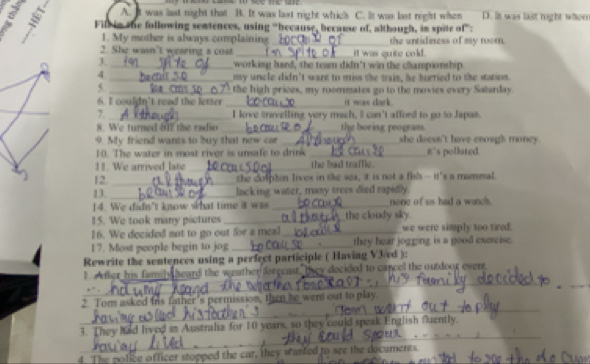 HET
A. It was last night that B. It was last night which C. It was last night when D. It was last night whom
Fill in the following sentences, using "because, because of, although, in spite of":
1. My mother is always complaining because of the untidiness of my room.
2. She wasn't wearing a coat in spite of it was quite cold.
3. in spite of working hard, the team didn't win the championship.
4. my uncle didn't want to miss the train, he hurried to the station.
5. the high prices, my roommates go to the movies every Saturday.
6. I couldn't read the letter because it was dark.
7. Although I love travelling very much, I can't afford to go to Japan.
8. We turned off the radio because of the boring program.
9. My friend wants to buy that new car Although she doesn't have enough money.
10. The water in most river is unsafe to drink because it's polluted.
11. We arrived late because of the bad traffic.
12. although the dolphin lives in the sea, it is not a fish – it's a mammal.
13. because of lacking water, many trees died rapidly.
14. We didn't know what time it was because none of us had a watch.
15. We took many pictures although the cloudy sky.
16. We decided not to go out for a meal because we were simply too tired.
17. Most people begin to jog because they hear jogging is a good exercise.
Rewrite the sentences using a perfect participle ( Having V3/ed ):
1. After his family heard the weather forecast, they decided to cancel the outdoor event.
heard the his family decided to
2. Tom asked his father's permission, then he went out to play.
having asked his father's Tom went out to play
3. They had lived in Australia for 10 years, so they could speak English fluently.
having lived they could speak
4. The police officer stopped the car, they wanted to see the documents.
to see the